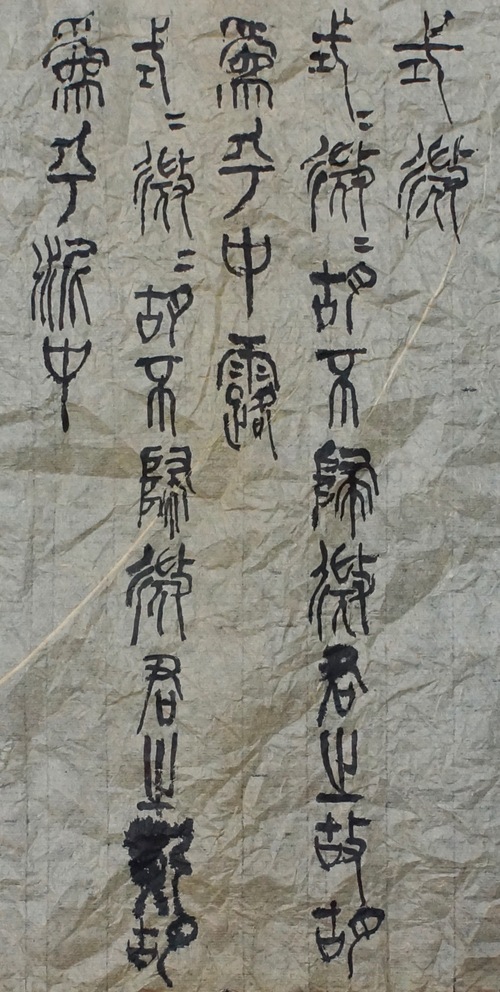 式微
式〻微〻胡不歸微君之故胡
爲乎中露
式〻微〻胡不歸微君之胡
爲乎泥中